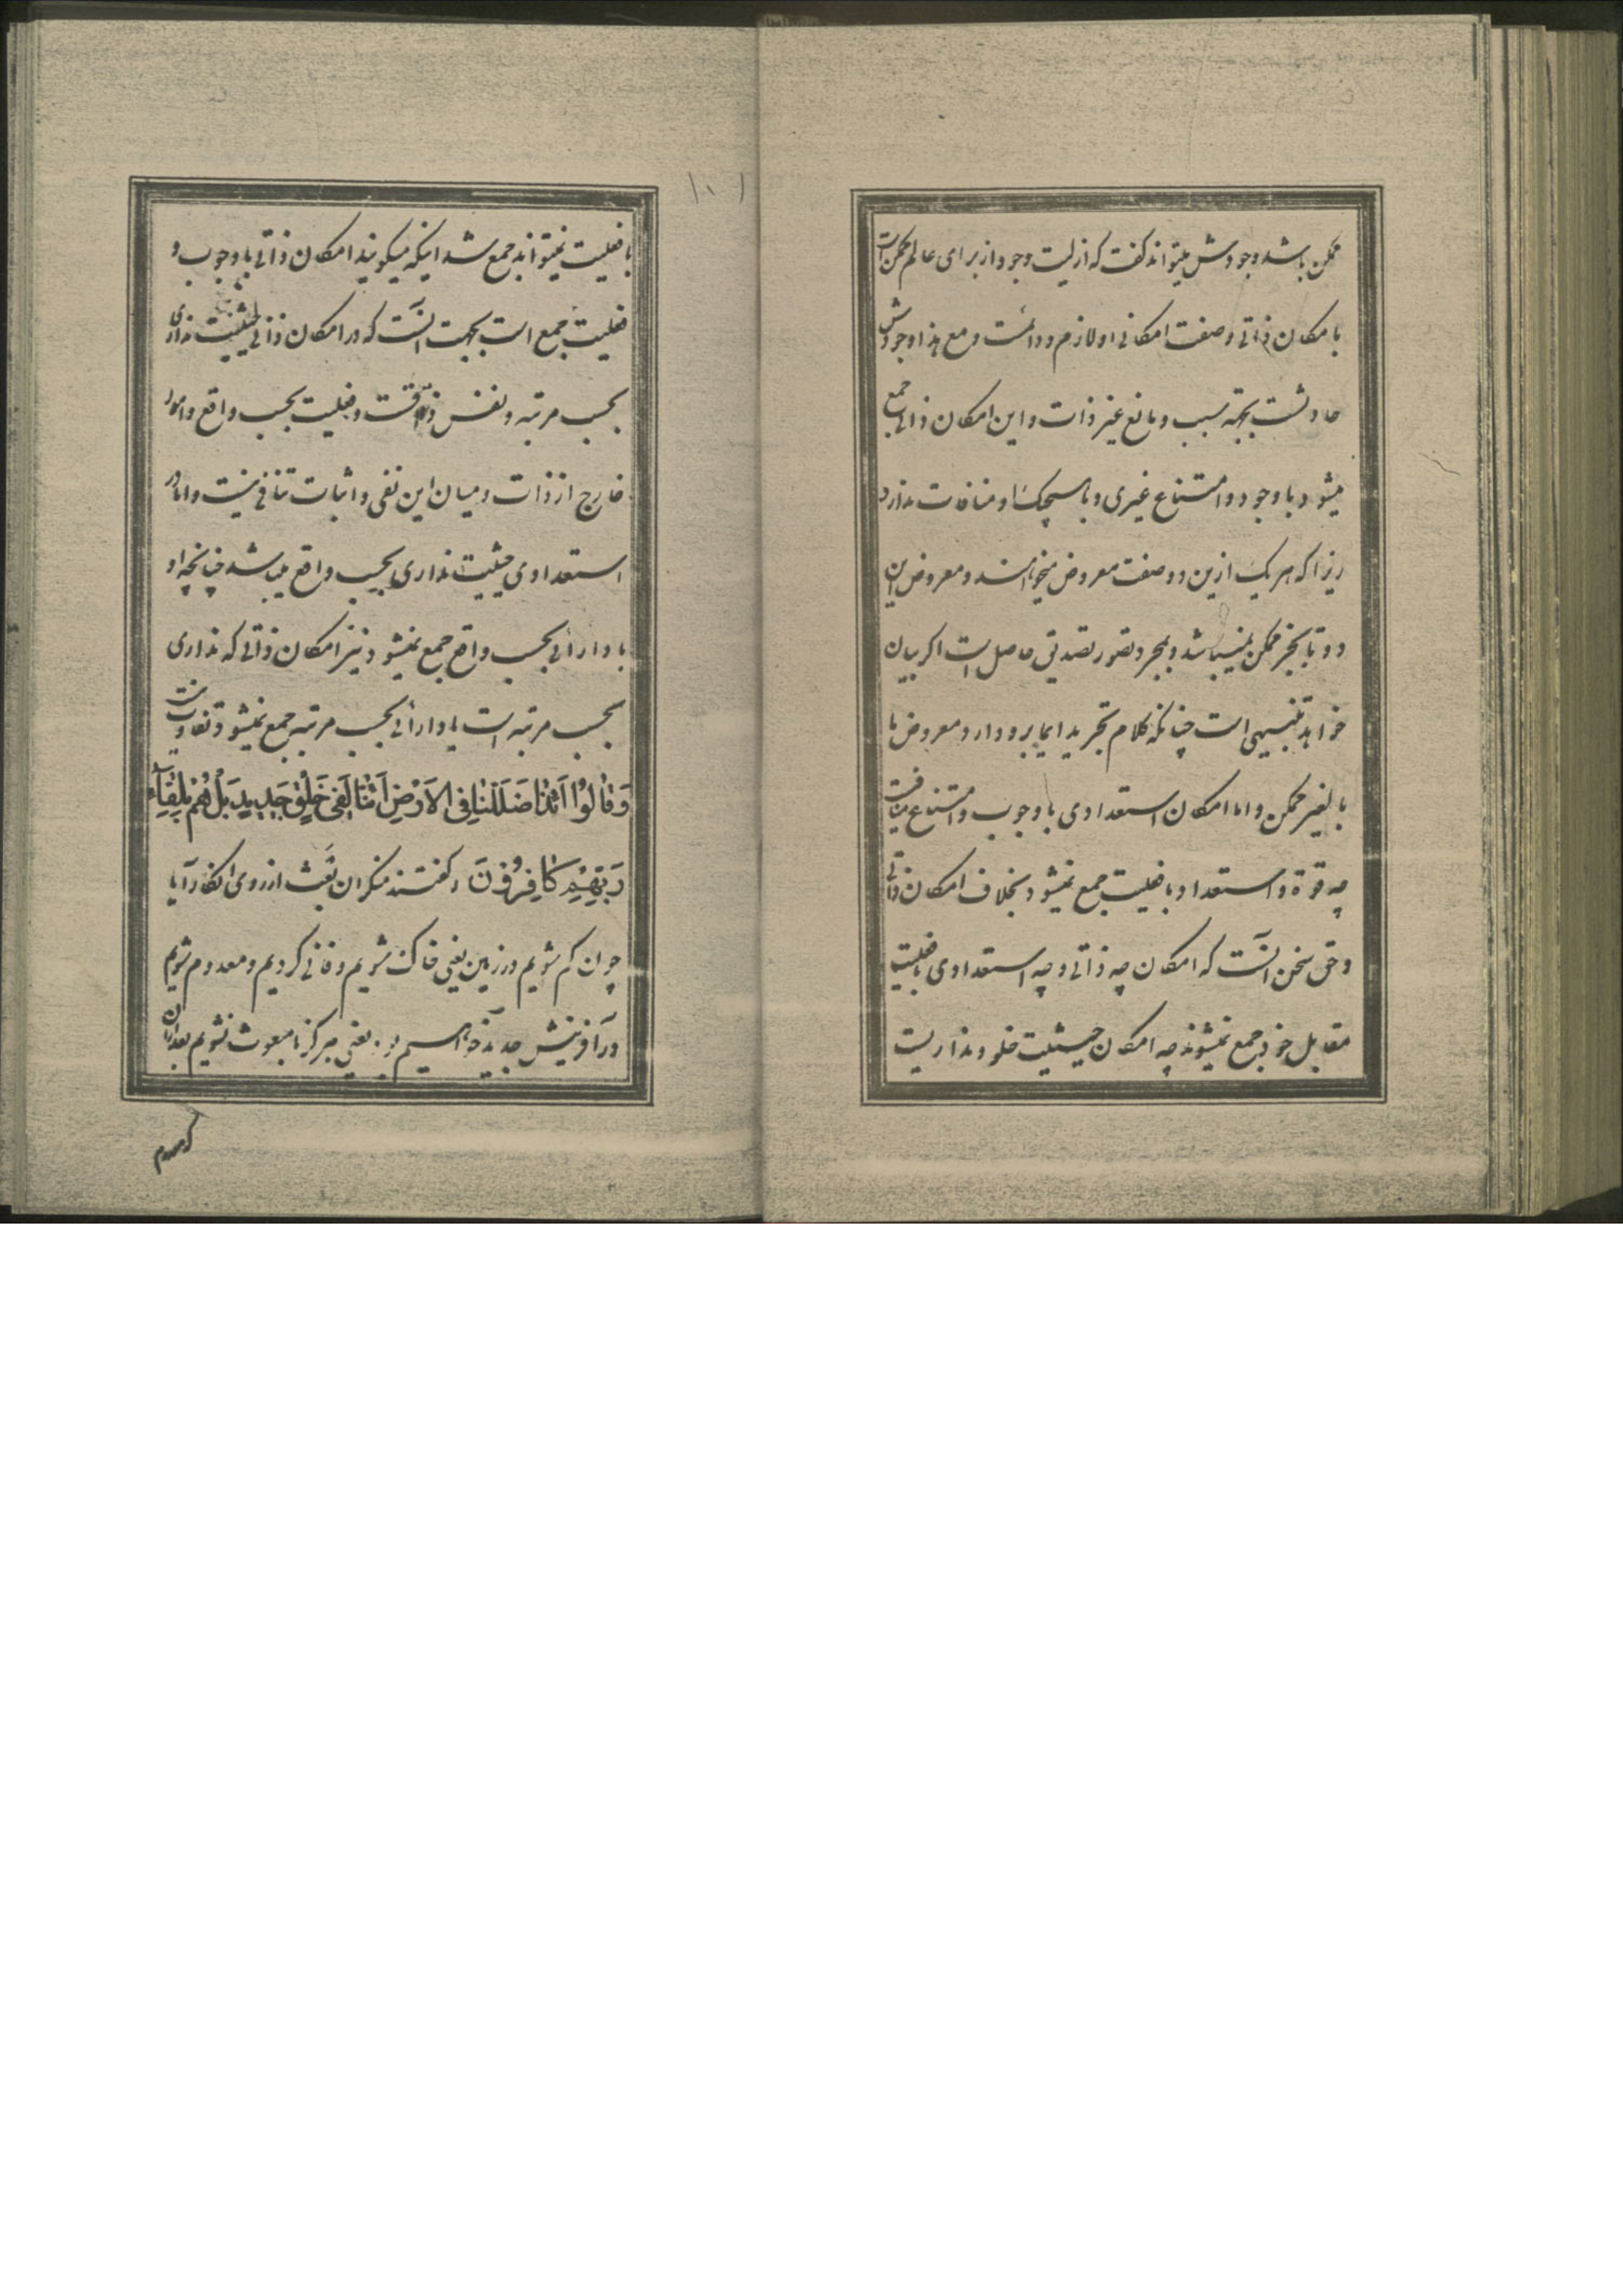 ممکن باشد وجودش میتواند گفت که ازلیت وجود از برای عالم ممکن است
بامکان ذاتی و صفت امکانی او لازم و دائمست و مع هذا وجودش
حادثست بجهة سبب و مانع غیر ذات و این امکان ذاتی جمع
میشود با وجود و امتناع غیری و با هیچیک او منافات ندارد
زیرا که هر یک ازین دو صفت معروض میخواهند و معروض این
دو تا بجز ممکن نمیباشد و بمجرد تصور تصدیق حاصل است اگر بیان
خواهد تنبیهی است چنانکه کلام تجرید ایما برو دارد و معروض ما
بالغیر ممکن و اما امکان استعدادی با وجوب و امتناع
چه قوة و استعداد با فعلیت جمع نمیشود بخلاف امکان ذاتی
و حق سخن آنست که امکان چه ذاتی و چه استعدادی با فعلیت
مقابل خود جمع نمیشوند چه امکان حیثیت خلو و نداریست
۱۰۱
با فعلیت نمیتواند جمع شد اینکه میگویند امکان ذاتی با وجوب و
فعلیت جمع است بجهت آنست که در امکان ذاتی حیثیت نداری
بحسب مرتبه و نفس ذاتست و فعلیت بحسب واقع و امور
خارج از ذات و میان این نفی و اثبات تنافی نیست و اما در
استعدادی حیثیت نداری بحسب واقع میباشد چنانچه او
با دارائی بحسب واقع جمع نمیشود نیز امکان ذاتی که نداری
بحسب مرتبه است با دارائی بحسب مرتبه جمع نمیشود
وَقَالُوا أَئِذَا ضَلَلْنَا فِی الْأَرْضِ أَئِنَّا لَفِی خَلْقٍ جَدِیدٍ بَلْ هُمْ بِلِقَآءِ
رَبِّهِمْ کَافِرُونَ و گفتند منکران بَعث از روی انکار آیا
چون گم شویم در زمین یعنی خاک شویم و فانی گردیم و معدوم شویم
در آفرینش جدید خواهیم بود یعنی هرگز ما مبعوث نشویم بعد از آن